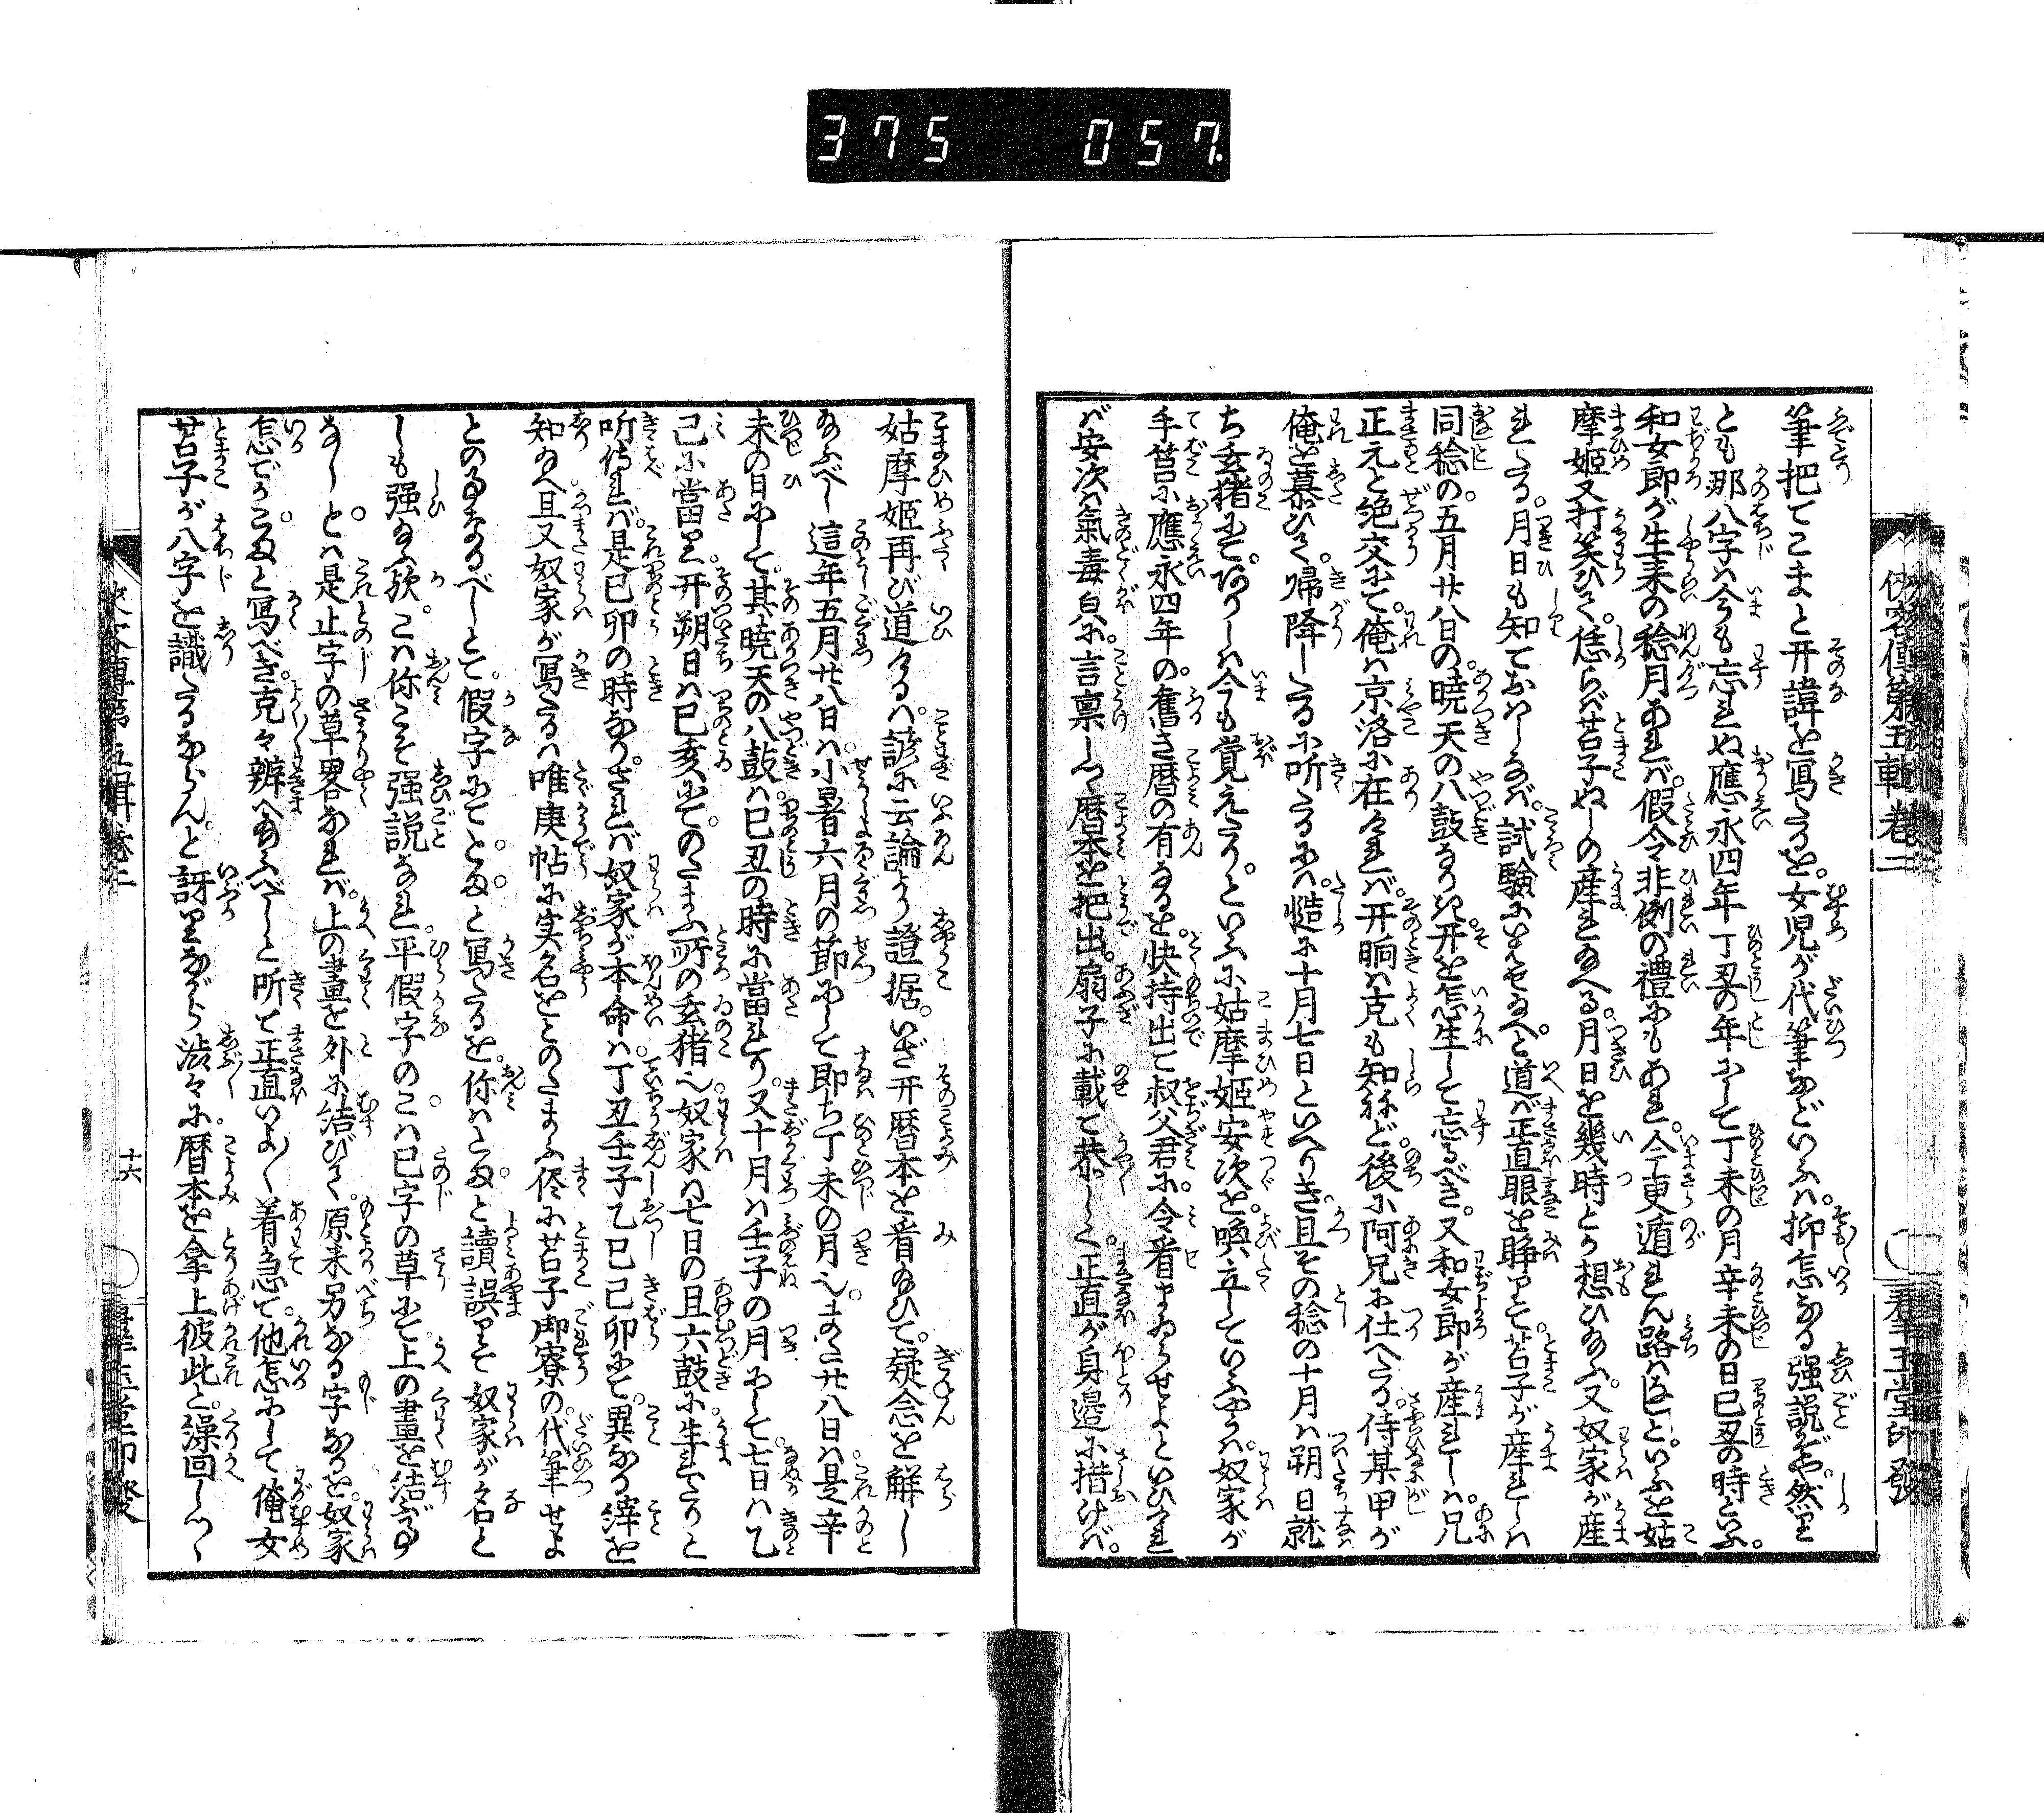 375 057
俠客傳第五輯卷二
羣玉堂印發
筆把てこまと开諱を寫たるを。女児が代筆などいふは。抑怎なる强説ぞや。然りと
とも那八字は今も忘れぬ應永四年丁丑の年にして丁未の月辛未の日己丑の時といふ。
和女郎が生來の稔月あれば。假令非例の禮にもあれ。今更遁れん路はなしといふを姑
摩姬又打笑ひて。恁らば苫子ぬしの産れ給へる。月日を幾時とか想ひ給ふ。又奴家が産
れたる。月日も知ておはしなば。試驗にいはせ給へと道ば正直眼を睁りて。苫子が産れしは
同稔の。五月廿八日の。曉天の八鼓なりき。开を怎生して忘るべき。又和女郎が産れしは。兄
正元と絶交にて。俺は京洛に在ければ。开晌は克も知ねど。後に阿兄に仕へたる。侍某甲が
俺を慕ひて。歸降したるに听たるに。慥に十月七日といへりき。且その稔の十月は朔日就
ち玄猪にて。ありしは今も覚えたり。といふに姑摩姬安次を。喚立していふやう。奴家が
手筥に應永四年の。舊き暦の有なるを。快持出て叔父君に。令看まゐらせよといひつれ
ば安次は氣毒皃に。言禀しつゝ暦本を把出。扇子に載て恭しく。正直が身邉に措けば。
姑摩姬再び道けるは。諺に云論より證据。いざ开暦本を看給ひて。疑念を觧し
給ふべし這年五月廿八日は。小暑六月の節にして即ち丁未の月也。又廿八日は是辛
未の日にして。其曉天の八鼓は己丑の時に當れり。又十月は壬子の月にして。七日は乙
己に當れり。开朔日は己亥にて。のたまふ所の玄猪也。奴家は七日の且六鼓に。生れたりと
听傳れば。是己卯の時なり。されば奴家が本命は。丁丑壬子乙巳己卯にて。異なる縡を
知給へ。且又奴家が寫たるは唯庚帖に実名をとのたまふ儘に苫子御寮の。代筆せよ
とのるなるべしとて。假字にて。とまと寫たるを。你はこまと讀誤りて奴家が名と
しも强給ふ欤。こは你こそ强説なれ。平假字のこは己字の草にて。上の畫を結ぶる
なし。とは是止字の草畧なれば。上の畫を外に結びて。原來另なる字なるを。奴家
怎でかこまと寫べき。克々辨へ給ふべしと听て正直いよ〳〵着急て。他怎にして俺女
苫子が八字を識たるならんと。訝りながら渋々に。暦本を拿上彼此と。繰回しつゝ
十六